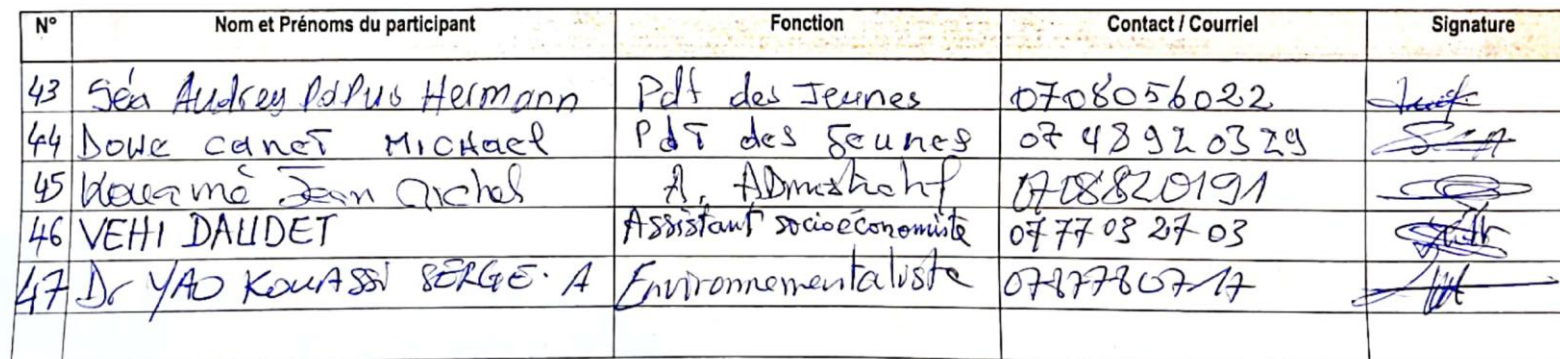 N° Nom et Prénoms du participant Fonction Contact / Courriel Signature
43 Séa Audrey Hermann Pdt des Jeunes 0708056022
44 Dowe canet MICHael PdT des Jeunes 07 48 92 03 29
45 Kouamé Jean Michel A. 0708820191
46 VEHI DAUDET Assistant socioéconomiste 07 77 03 27 03
47 Dr YAO KOUASSI SERGE. A Environnementaliste